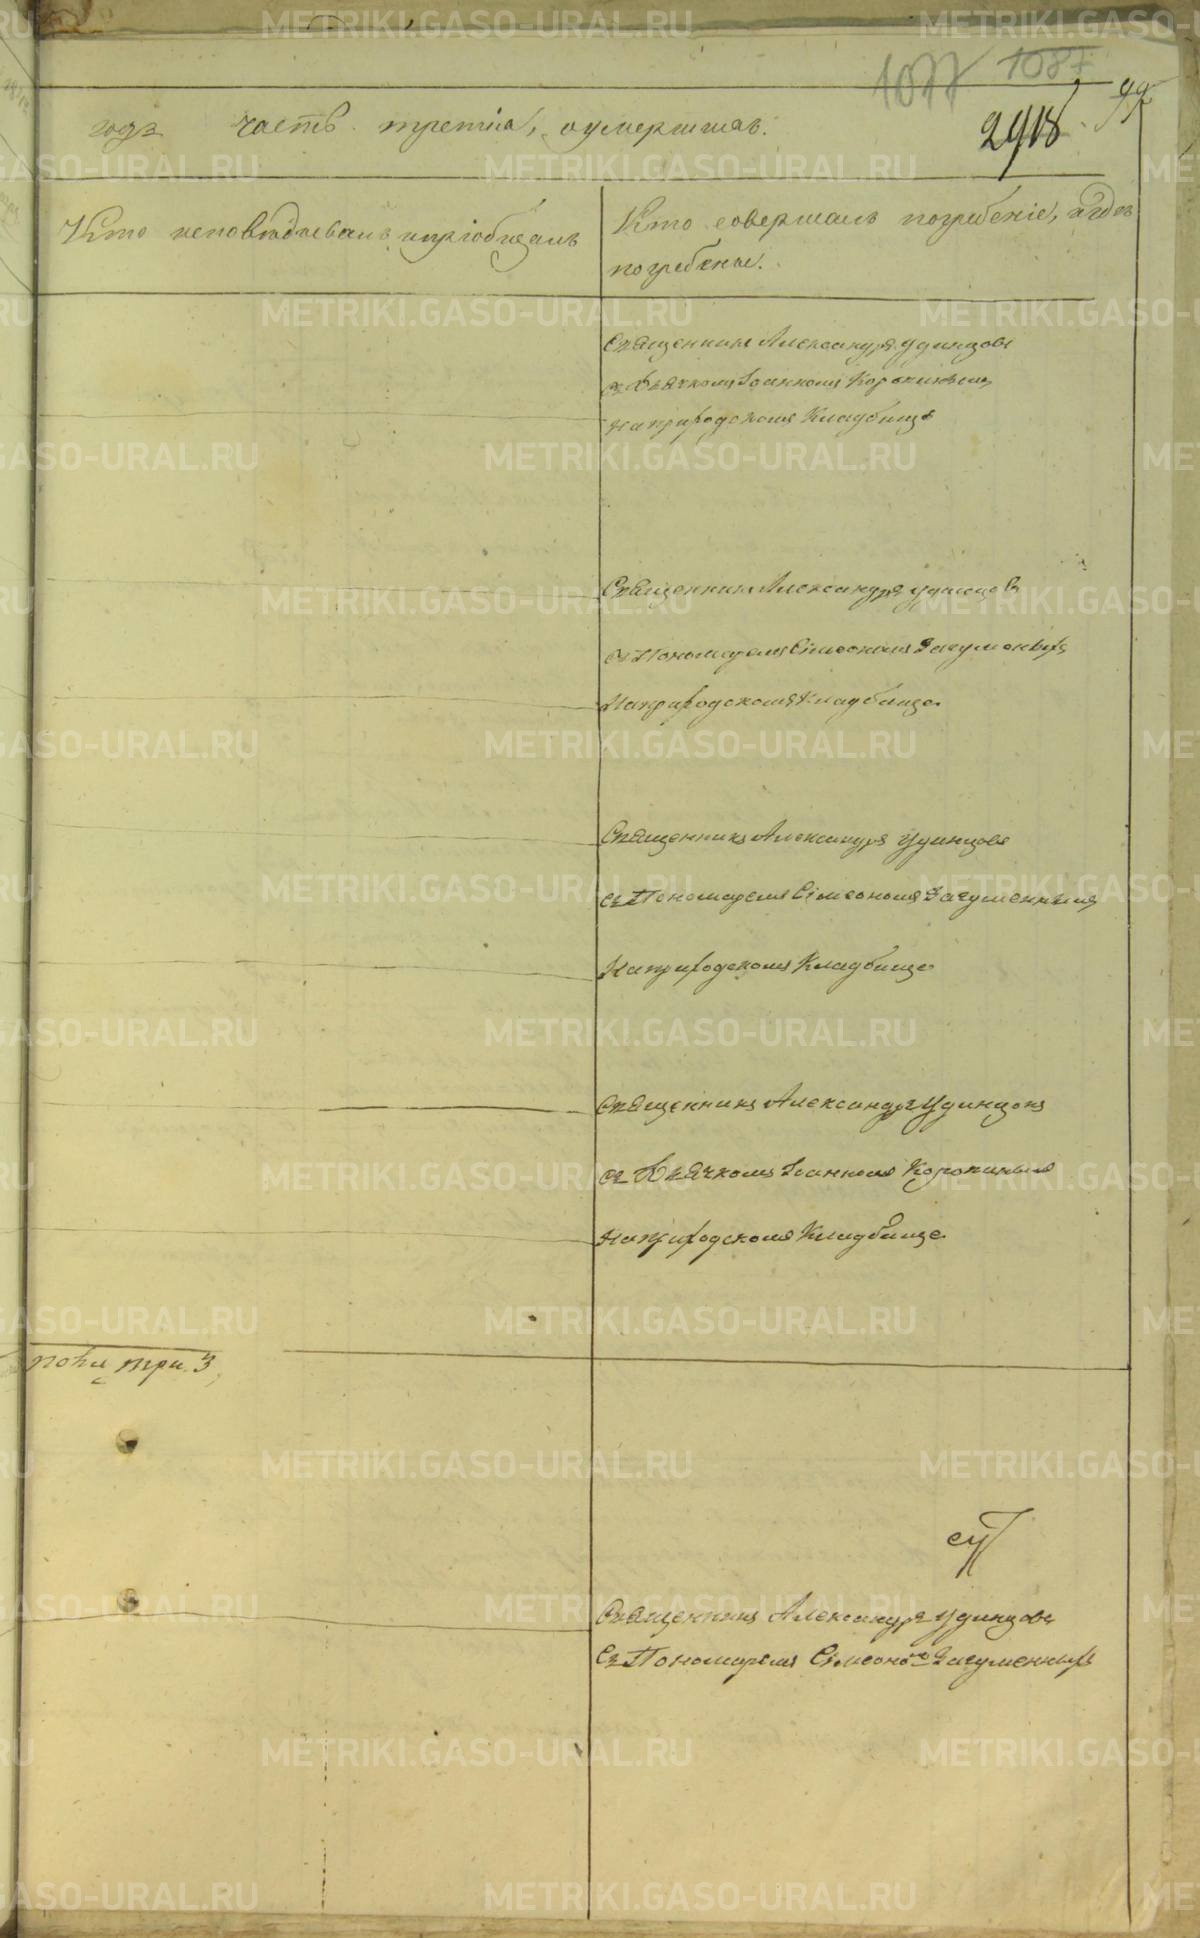 1077 1087
99
2918
годъ часть третія, оумершихъ.
Кто исповѣдывалъ и пріобщалъ
Кто совершалъ погребеніе, и гдѣ
погребены.
Священникъ Александръ Удинцовъ
съ Дьячкомъ Іоанномъ Коровинымъ
на приходскомъ Кладбищѣ
Священникъ Александръ Удинцовъ
съ Пономаремъ Сімеономъ Загуменныхъ
На приходскомъ Кладбище
Священникъ Александръ Удинцовъ
съ Пономаремъ Сімеономъ Загуменнымъ
На приходскомъ Кладбище
Священникъ Александръ Удинцовъ
съ Дьячкомъ Іоанномъ Коровинымъ
на приходскомъ Кладбище
три. 3
Священникъ Александръ Удинцовъ
Съ Пономаремъ Сімеономъ Загуменныхъ
METRIKI.GASO-URAL.RU